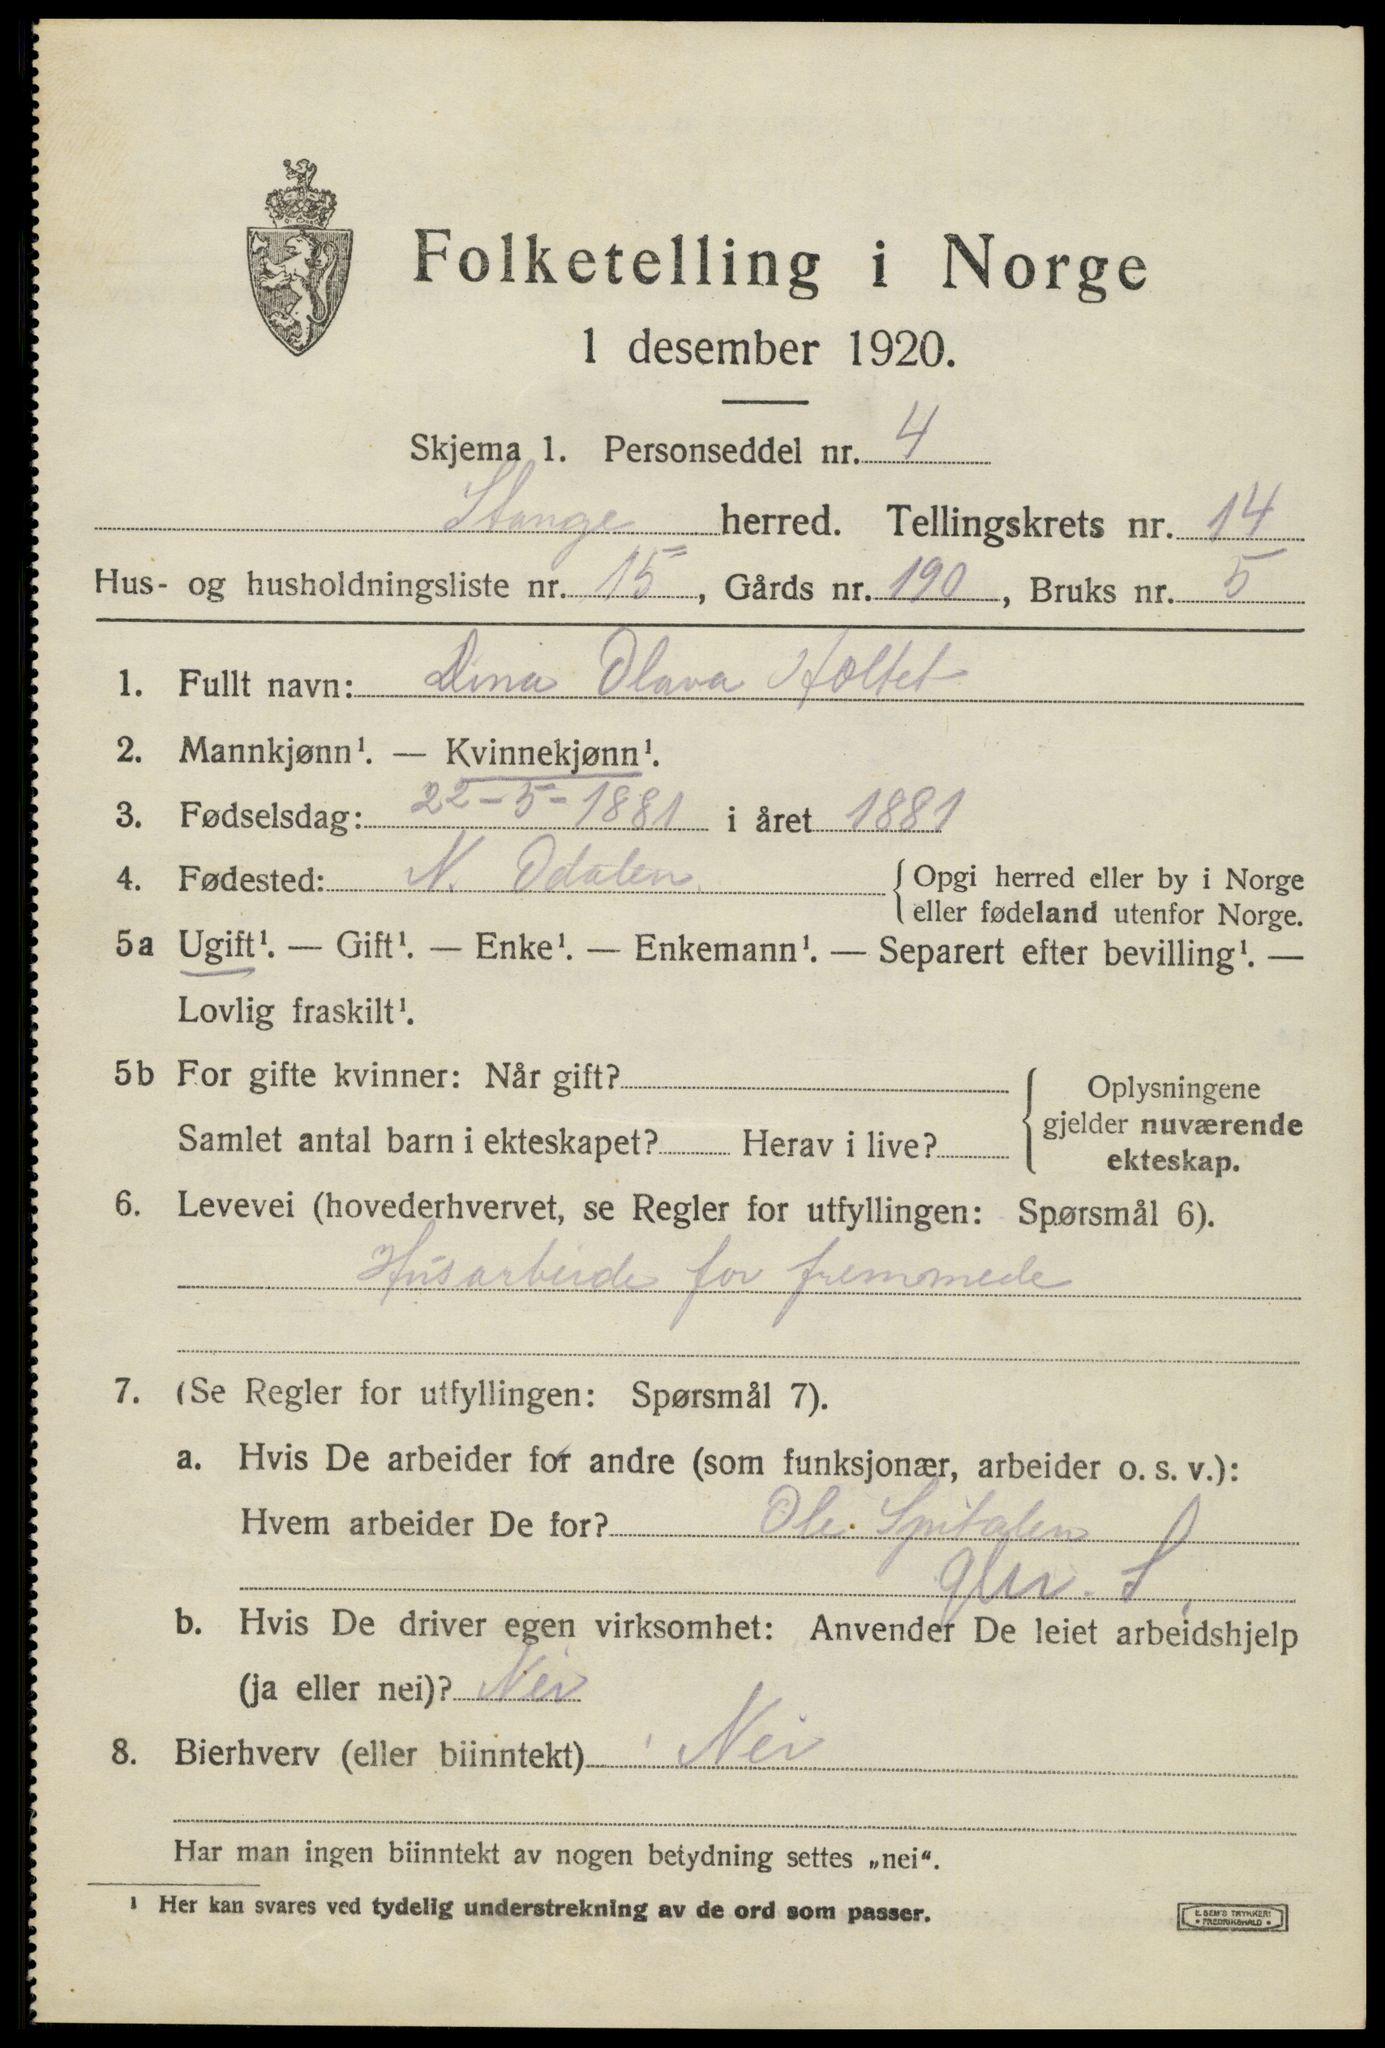 Folketelling i Norge
1 desember 1920.
Skjema 1. Personseddel nr. 4
Stange herred. Tellingskrets nr. 14
Hus- og husholdningsliste nr. 15, Gårds nr. 190, Bruks nr. 5
1. Fullt navn: Dina Olava Holtet
2. Mannkjønn¹. — Kvinnekjønn¹.
3. Fødselsdag: 22-5-1881 i året 1881
4. Fødested: N. Odalen
Opgi herred eller by i Norge
eller fødeland utenfor Norge.
5a Ugift¹. — Gift¹. — Enke¹. — Enkemann¹. — Separert efter bevilling¹. —
Lovlig fraskilt¹.
5b For gifte kvinner: Når gift?
Samlet antal barn i ekteskapet? Herav i live?
Oplysningene
gjelder nuværende
ekteskap.
6. Levevei (hovederhvervet, se Regler for utfyllingen: Spørsmål 6).
Husarbeide for fremmede
7. (Se Regler for utfyllingen: Spørsmål 7).
a. Hvis De arbeider for andre (som funksjonær, arbeider o. s. v.):
Hvem arbeider De for? Ole Spitalen
b. Hvis De driver egen virksomhet: Anvender De leiet arbeidshjelp
(ja eller nei)? Nei
8. Bierhverv (eller biinntekt) Nei
Har man ingen biinntekt av nogen betydning settes „nei“.
¹ Her kan svares ved tydelig understrekning av de ord som passer.
E. SEM'S TRYKKERI
• FREDRIKSHALD •